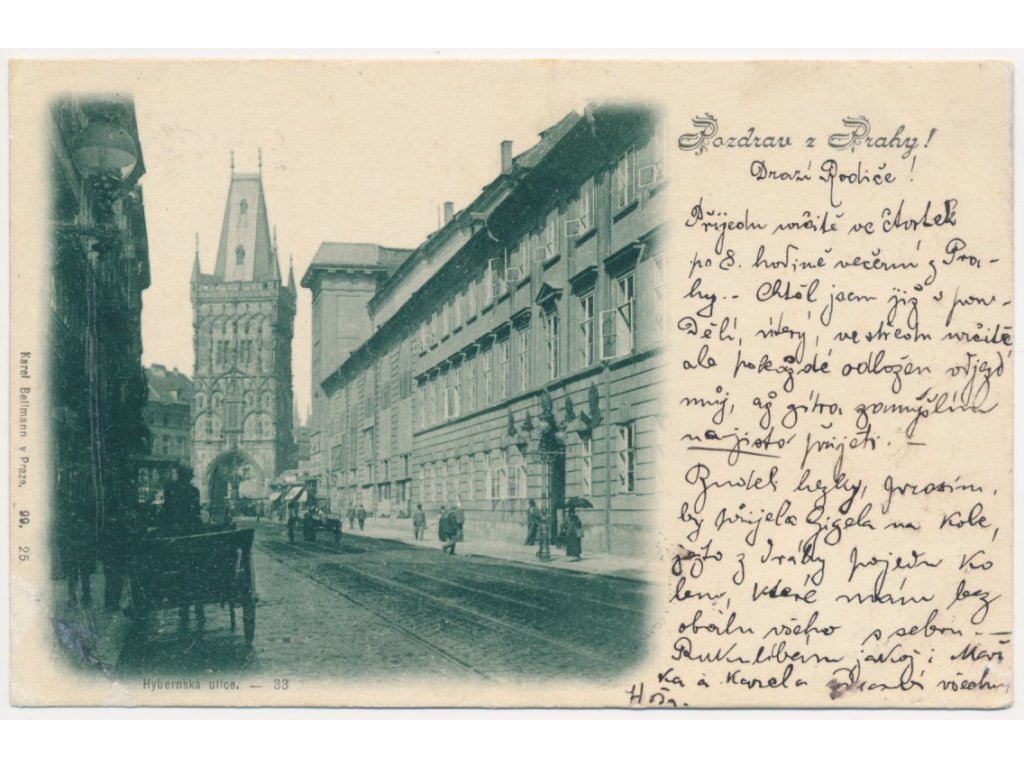 Pozdrav z Prahy!
Drazí Rodiče!
Přijedu určitě ve čtvrtek
po 8. hodině večerní z Pra-
hy. - Chtěl jsem již v pon-
dělí, úterý, ve středu určitě,
ale pokaždé odložen odjezd
můj, až zítra zamýšlím
na jisto přijeti. -
Budet hezky, prosím,
by přijela Gigela na kole,
z dráhy pojedu ko
lem, které mám bez
obalu všeho s sebou. -
Ruku líbám jakož i Mař
ka a Karela všechny
Karel Bellmann v Praze. 99. 25.
Hybernská ulice. — 33